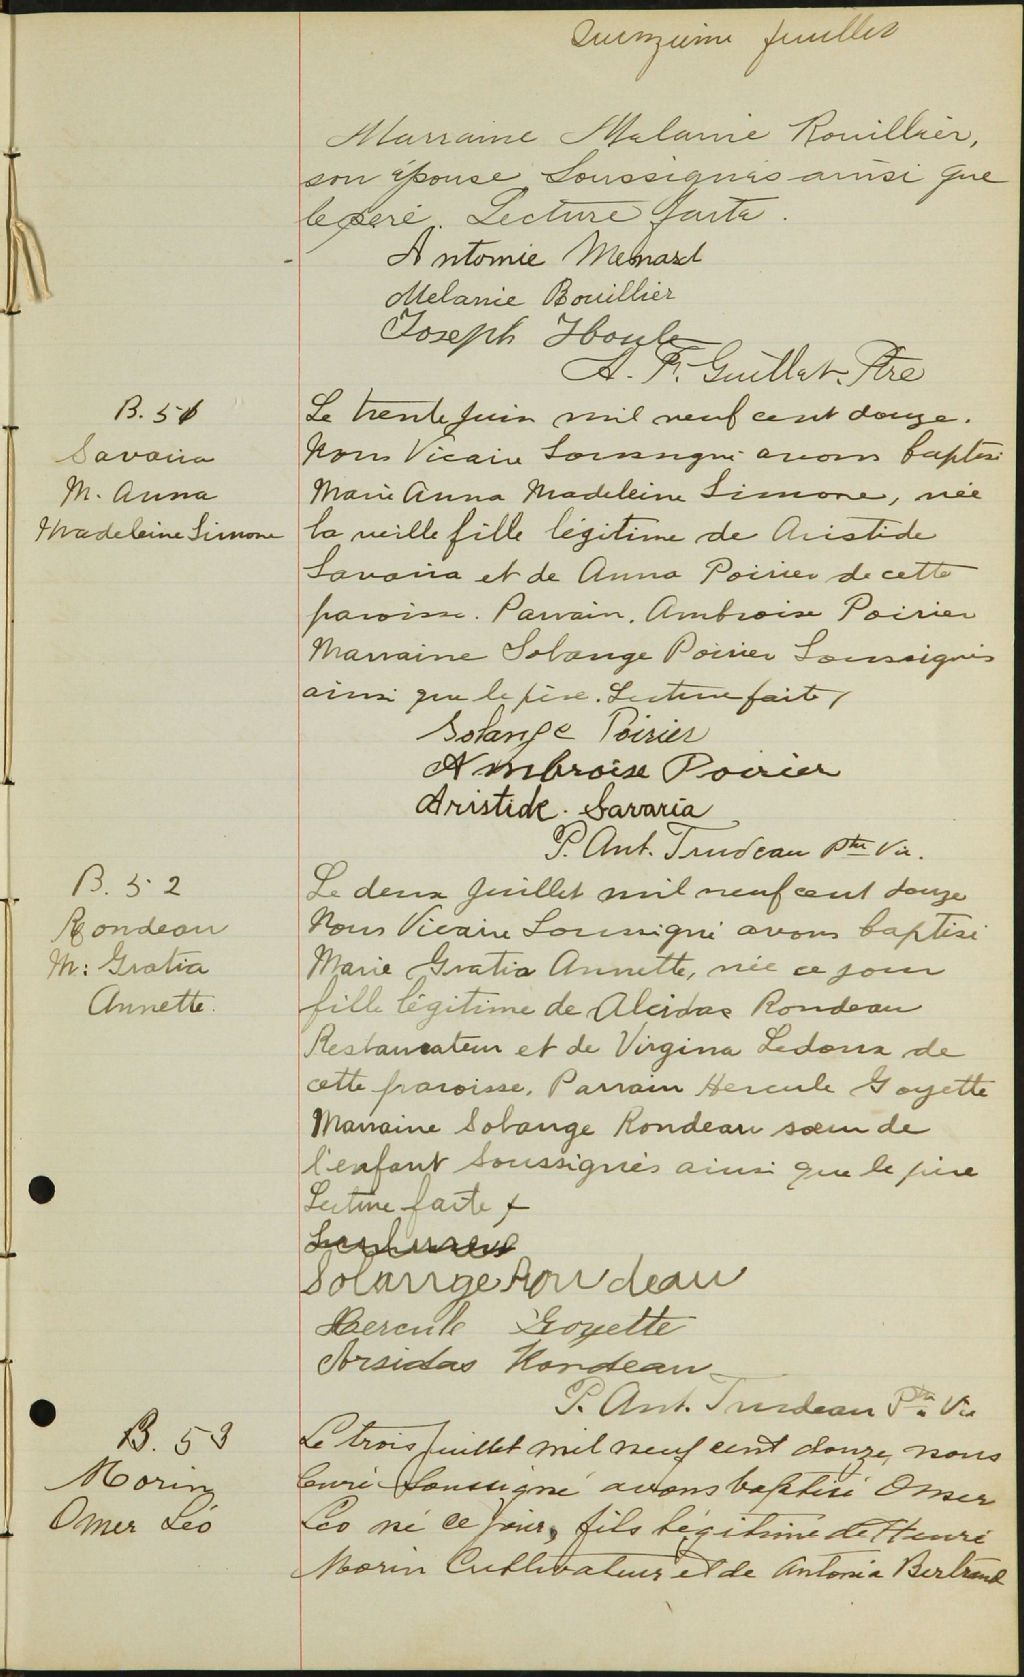 Quinzième feuillet
Marraine Melanie Rouillier,
son épouse Soussignés ainsi que
le père. Lecture faite.
Antonie Menard
Melanie Rouillier
Joseph Houle
A. F. Guillet. Ptre
B. 51
Savaria
M. Anna
Madeleine Simone
Le trente Juin mil neuf cent douze.
Nous Vicaire Soussigné avons baptisé
Marie Anna Madeleine Simone, née
la veille fille légitime de Aristide
Savaria et de Anna Poirier de cette
paroisse. Parrain, Ambroise Poirier
Marraine Solange Poirier Soussignés
ainsi que le père. Lecture faite
Solange Poirier
Ambroise Poirier
Aristide Savaria
P. Ant. Trudeau Ptre Vic.
B. 52
Rondeau
M: Gratia
Annette.
Le deux Juillet mil neuf cent douze
Nous Vicaire Soussigné avons baptisé
Marie Gratia Annette, née ce jour
fille légitime de Alcidas Rondeau
Restaurateur et de Virgina Ledoux de
cette paroisse. Parrain Hercule Goyette
Marraine Solange Rondeau sœur de
l'enfant Soussignés ainsi que le père
Lecture faite
Solange Rondeau
Hercule Goyette
Arsidas Rondeau
P. Ant. Trudeau Ptre Vic
B. 53
Morin
Omer Léo
Le trois Juillet mil neuf cent douze, nous
Curé Soussigné avons baptisé Omer
Léo né ce jour, fils légitime de Henri
Morin Cultivateur et de Antonia Bertrand